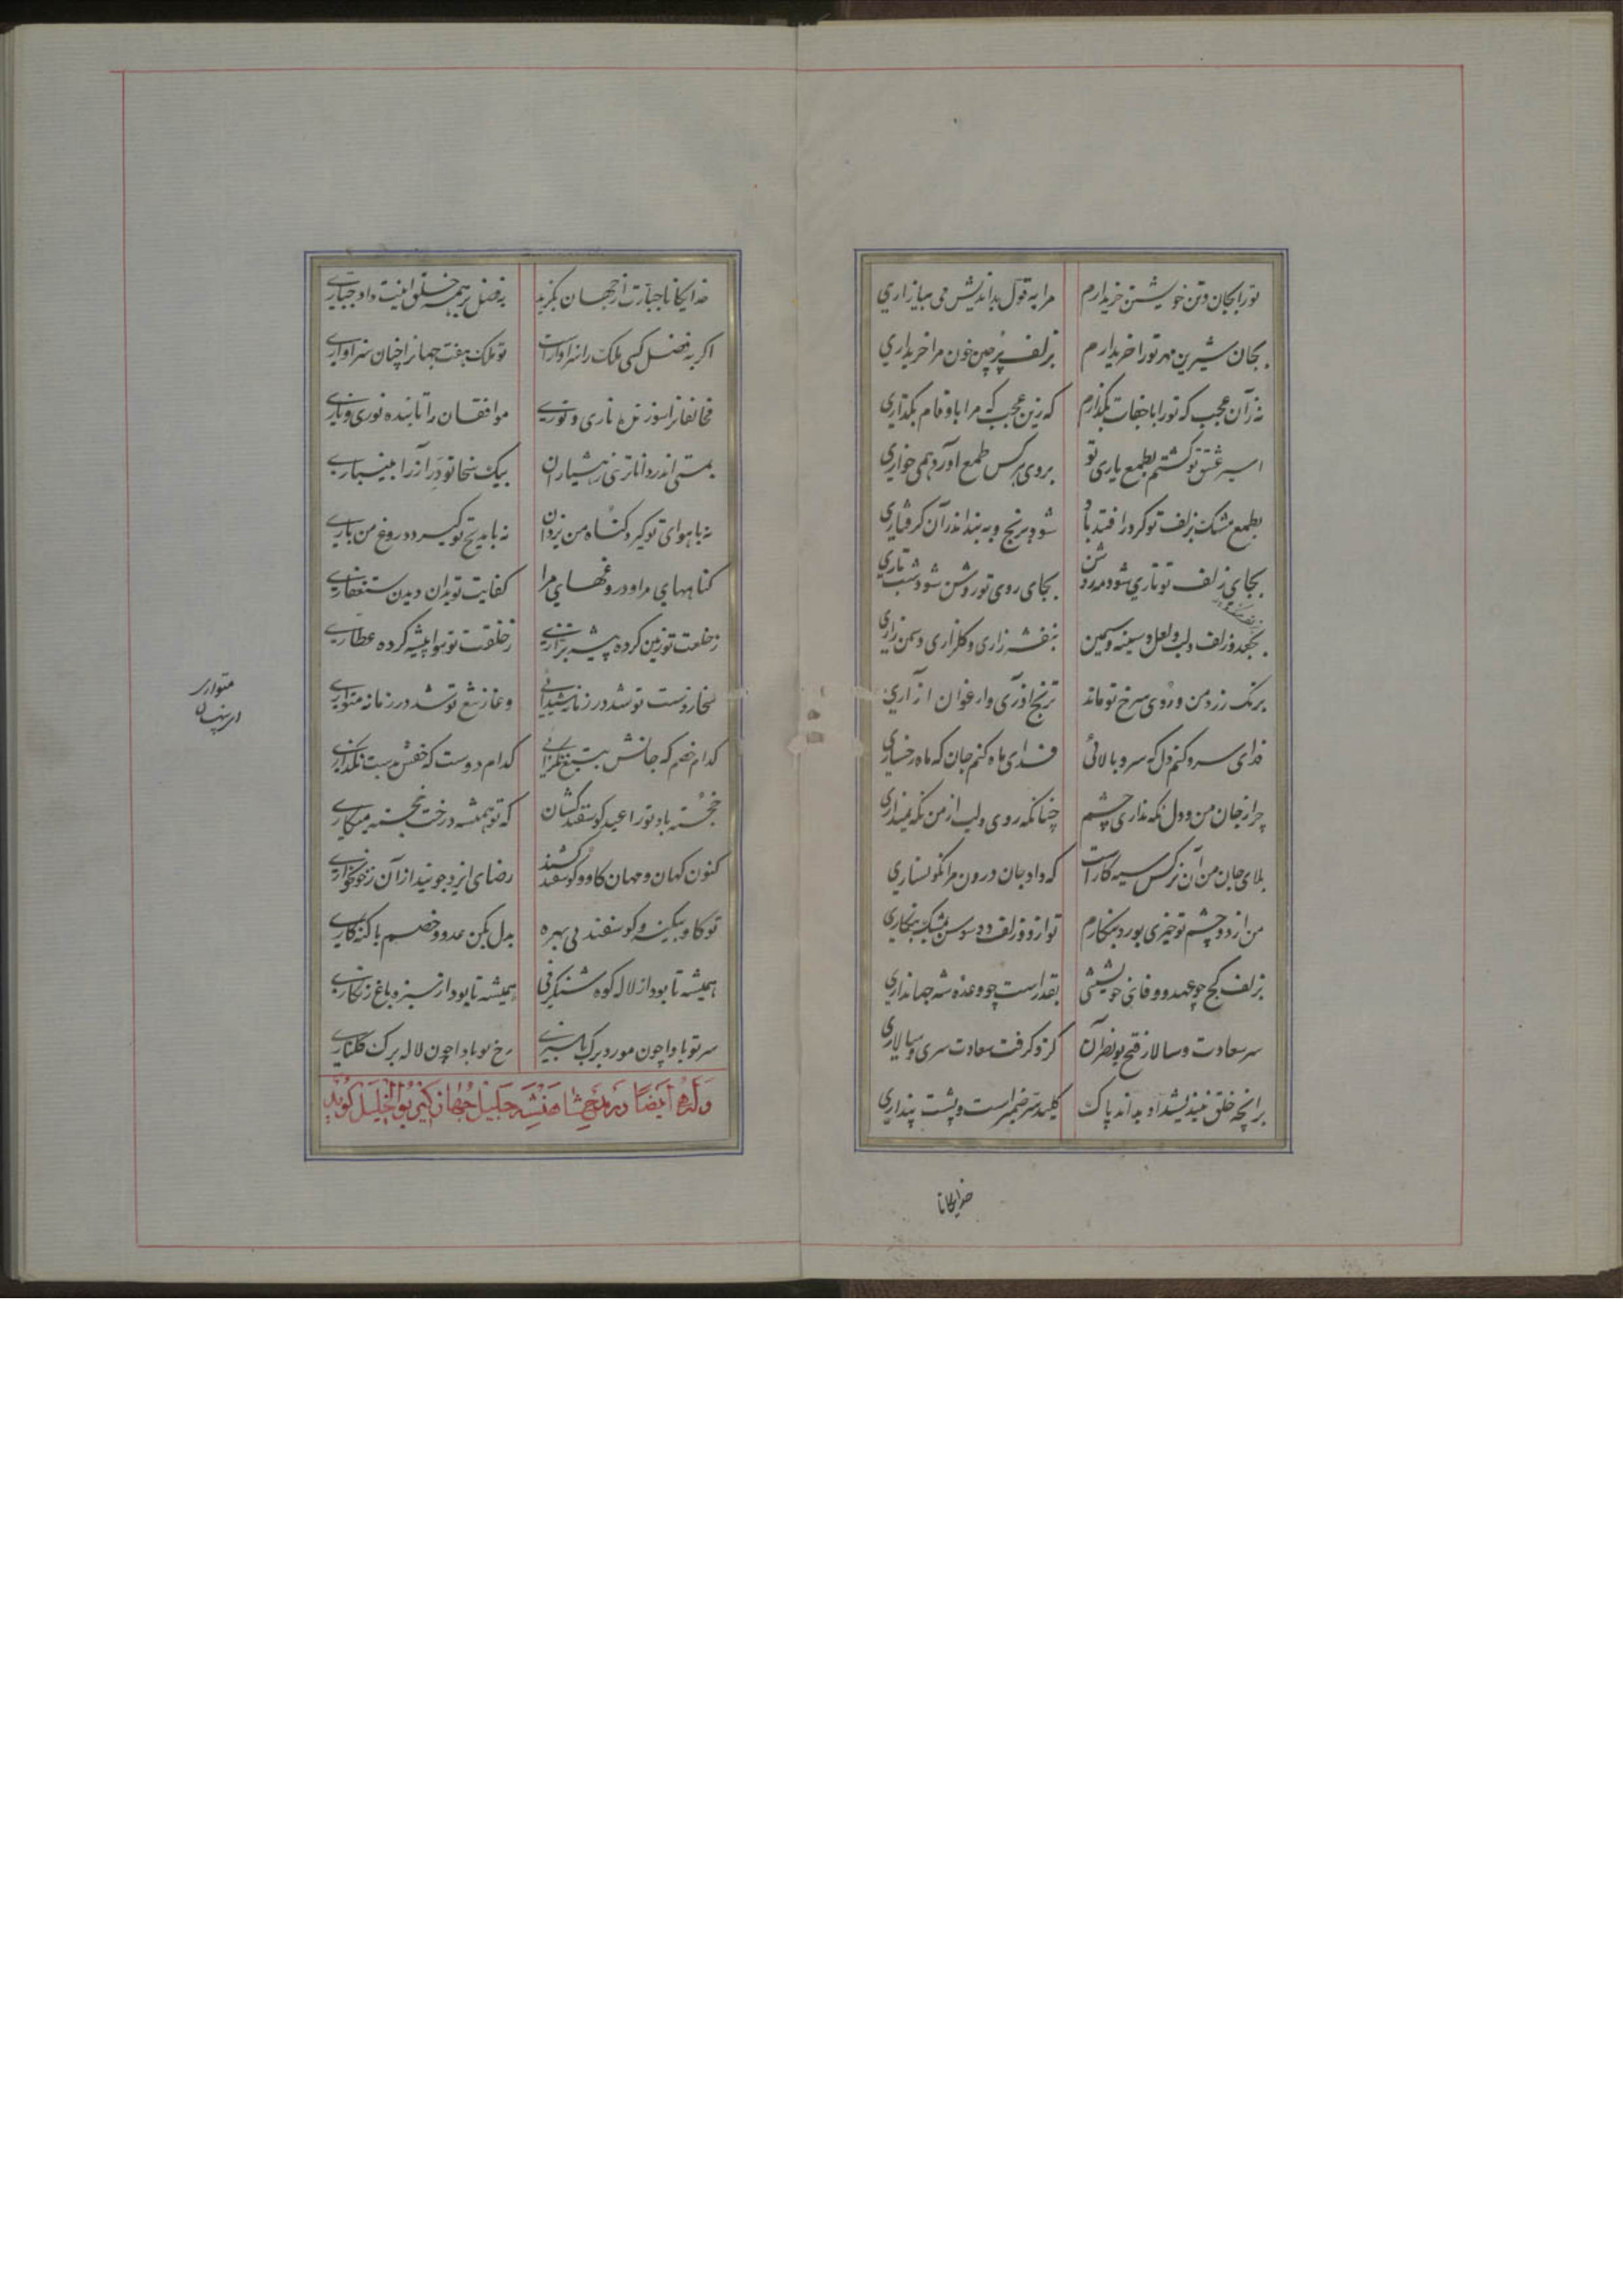 تورا بجان و تن خویشتن خریدارم مرا به قول بداندیش می بیازاری
بجان شیرین مهر تورا خریدارم بزلف پرچین خون مرا خریداری
نه زآن عجب که تورا با جفات بگذارم که زین عجب که مرا با وفام بگذاری
اسیر عشق تو گشتم بطمع یاری تو بروی هرکس طمع آورد همی خواری
بطمع مشک بزلف تو گر درافتد باد شود برنج و به بند اندر آن گرفتاری
بجای زلف تو تاری شود مه روشن بجای روی تو روشن شود شب تاری
بجعد و زلف و لب و لعل و سینه و سیمین بنفشه زاری و گلزاری و سمن زاری
برنگ زرد من و روی سرخ تو ماند ترنج آذری و ارغوان آزاری
فدای سرو کنم دل که سرو بالائی فدای ماه کنم جان که ماه رخساری
چرا ز جان من و دل نگه نداری چشم چنانکه روی و لب از من نگه نمیداری
بلای جان من آن نرگس سیه کار است که داد جان و درون مرا نگونساری
من از دو چشم تو خیری بورد بنگارم تو از دو زلف دو سوسن بمشک بنگاری
بزلف کج چو عهد و وفای خویشتنی بقد راست چو وعده شه جهانداری
سر سعادت و سالار فتح بونصر آن کزو گرفت سعادت سری و سالاری
برانچه خلق نیندیشد او بداند پاک کلید سر ضمیر است و پشت پنداری
خدایگانا
خدایگانا جبارت از جهان بگزید به فضل بر همه خلق اینت داد جباری
اگر به فضل کسی ملک را سزاوار است تو ملک هفت جهانرا چنان سزاواری
مخالفانرا سوزنده ناری و نوری موافقان را تابنده نوری و ناری
بمستی اندر داناتری ز هشیاران بیک سخا تو در آز را بینباری
نه با هوای تو گیرد گناه من یزدان نه با مدیح تو گیرد دروغ من باری
گناههای مرا و دروغهای مرا کفایت تو بدان دیدن ستغفاری
ز خلعت تو زمین کرده پیشه بزازی ز خلقت تو هوا پیشه کرده عطاری
سخا ز دست تو شد در زمانه شیدائی وغا ز تیغ تو شد در زمانه متواری
متواری
ای پنهان
کدام خصم که جانش به تیغ نگزائی کدام دوست که حقش بدست نگذاری
خجسته باد تورا عید گوسفندکشان که تو همیشه درخت خجسته میکاری
کنون کهان و مهان گاو و گوسفند کشند رضای ایزد جویند از آن ز خونخواری
تو گاو بیکینه و گوسفند بی بهره بدل بکن عدو و خصم با گنه کاری
همیشه تا بود از لاله کوه شنگرفی همیشه تا بود از سبزه باغ زنگاری
سر تو بادا چون مورد برگ با سبزی رخ تو بادا چون لاله برگ گلناری
وله ایضا در مدح شاهنشه جلیل جهان کهن بوالخلیل گوید